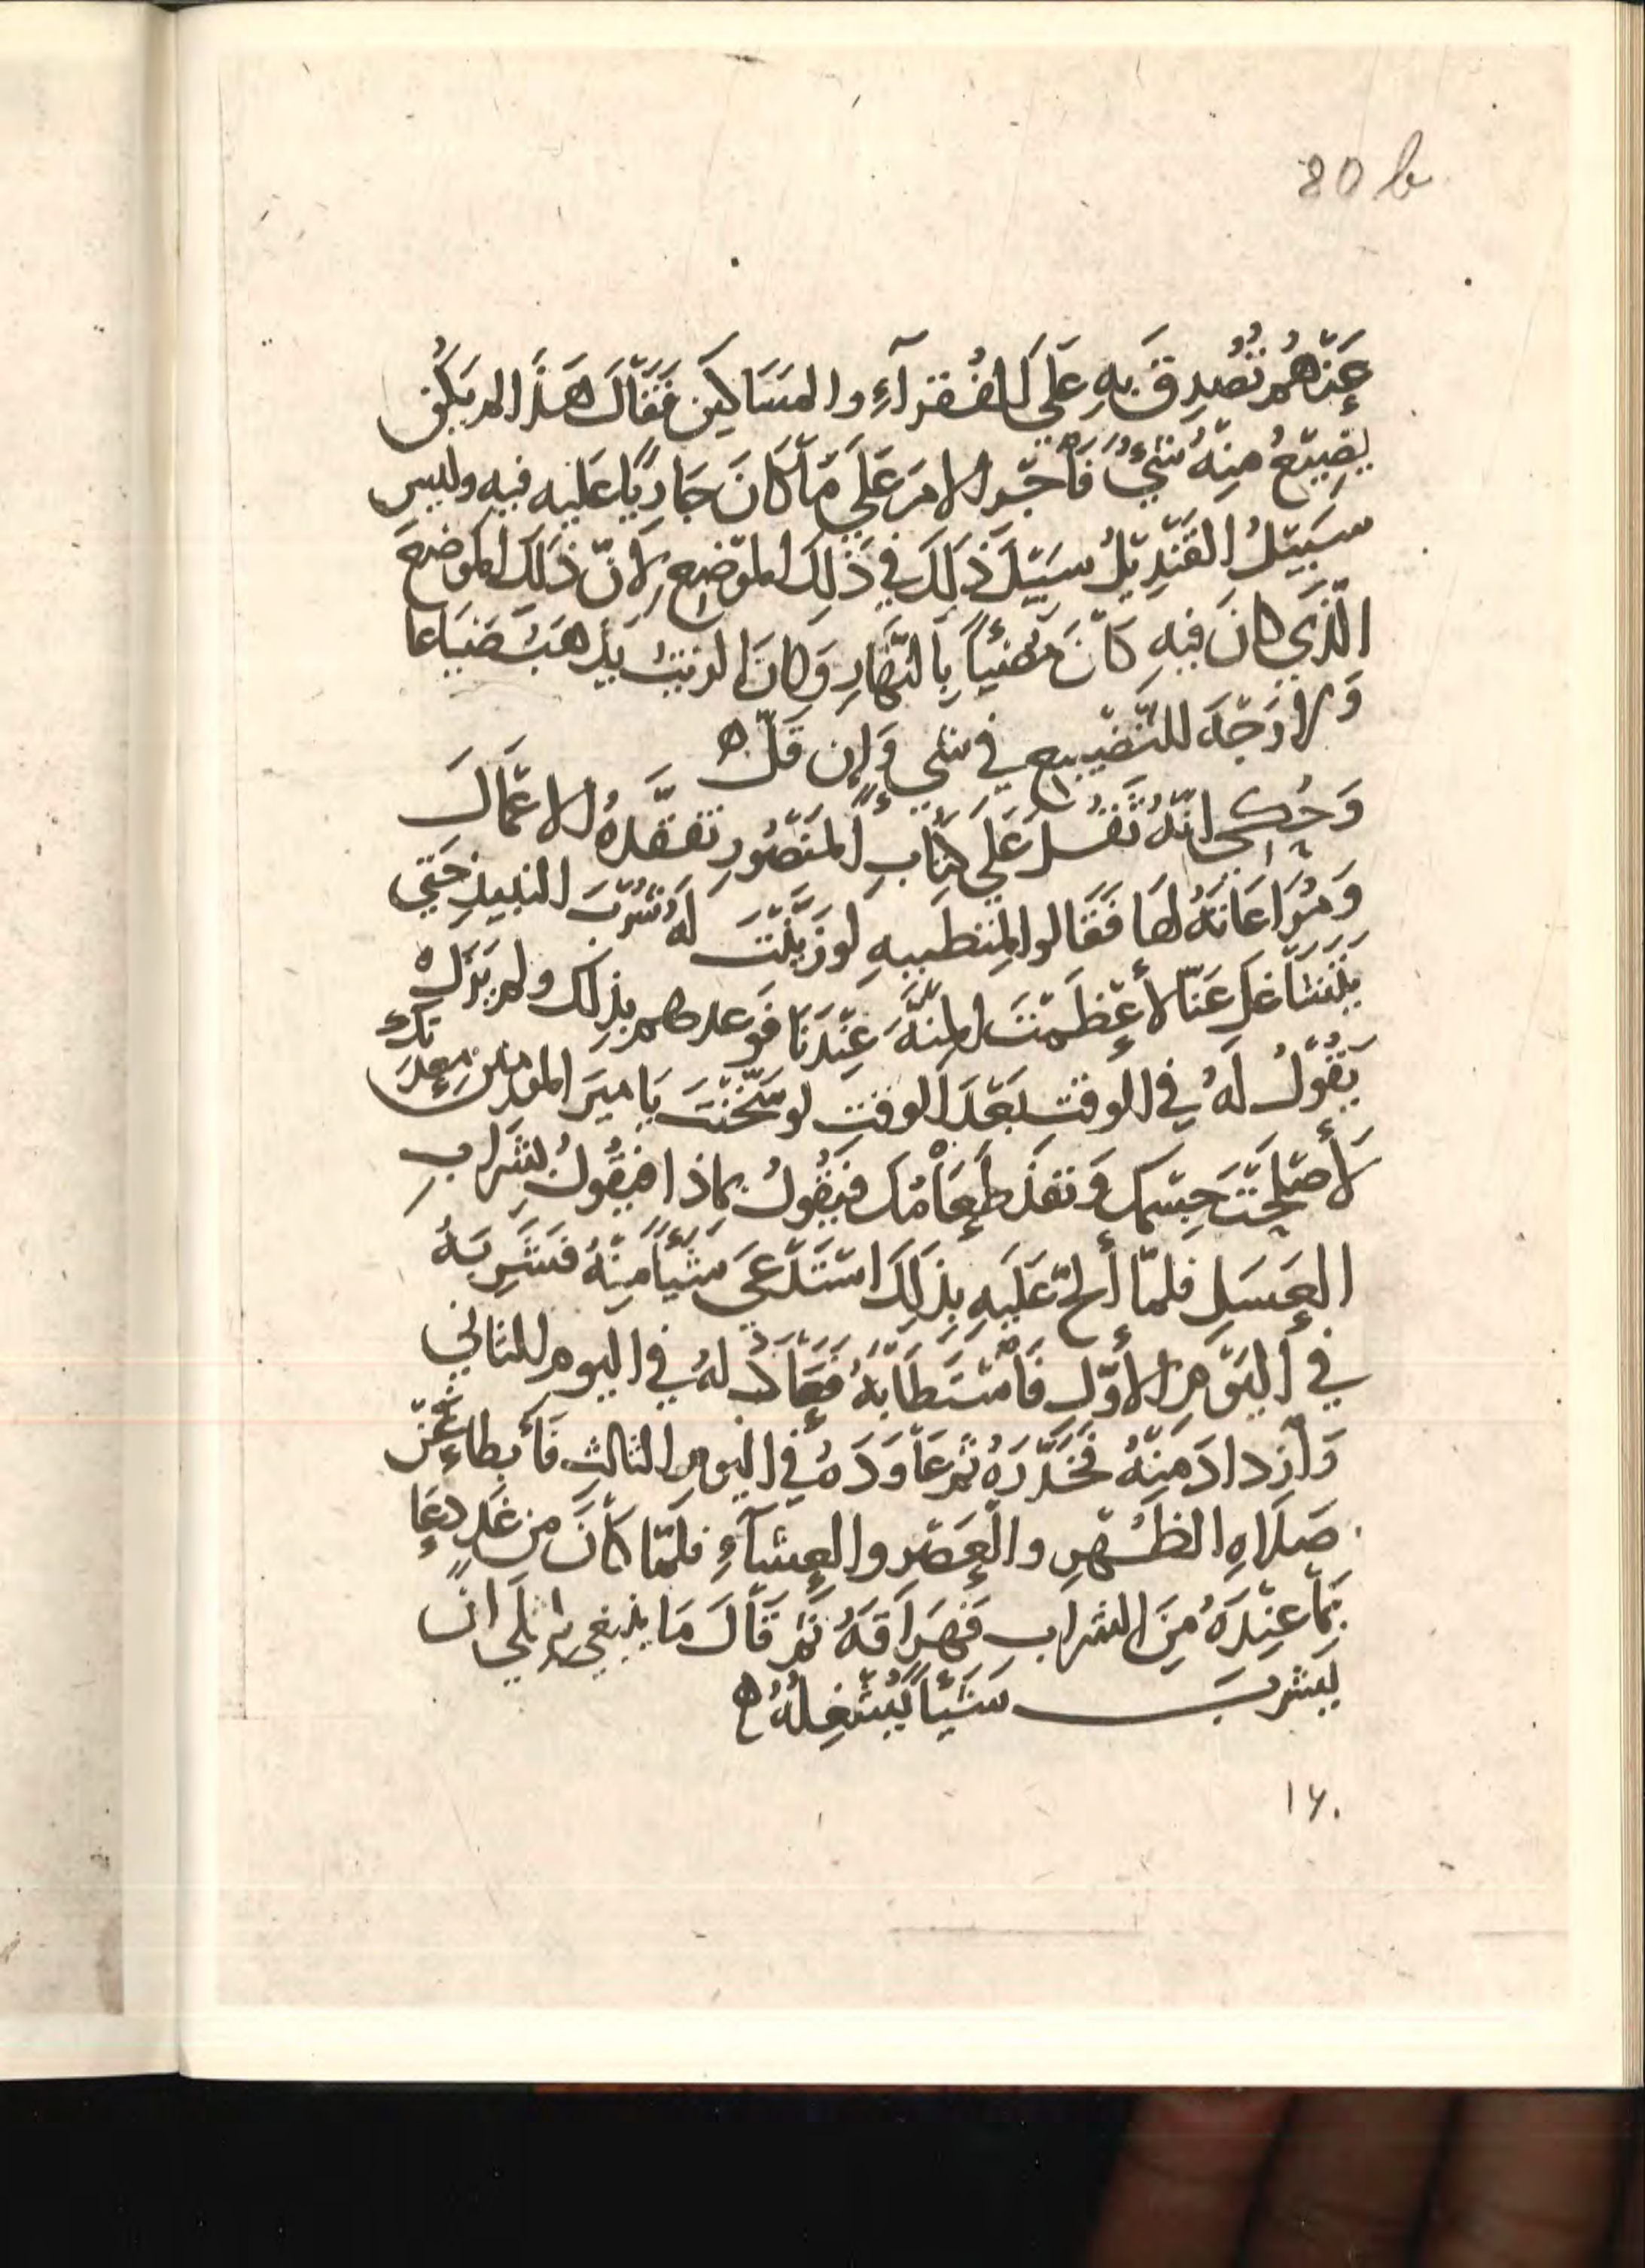 80 b
عَنْهُم تُصُدِقَ بِهِ عَلَى الفُقرَآءِ والمَسَاكِين فَقَالَ هَذَا لم يَكُن
يَضِيعُ مِنهُ شَيْءٌ فَأَجْرِ الامرَ عَلَى مَا كَانَ جَارِيًا عليه فيه وليس
سَبيْلُ القَنْدِيْلِ سَبِيْلَ ذَلِكَ فِي ذَلِكَ المَوْضِع لِاَنّ ذَلَكَ الموَضِعَ
الّذَي كانَ فيهِ كَانَ مُضِيْئاً بِالنَّهَارِ وَكانَ الزيتُ يَذهَبُ ضَيَاعا
وَلا وَجْهَ للتَّضْيِيعِ في شي وَإن قَلَّ ه
وَحُكِيَ انّهُ ثَقُلَ عَلَى كتّابِ المَنْصُورِ تفقّدهُ الاعمَالَ
وَمُرَاعَاتهُ لهَا فَقَالوا لِمُتطَببِهِ لو زَيَّنْتَ لَهُ شُرْبَ النبيذِ حَتّي
يَتَشَاغلَ عَنّا لأعْظَمْتَ المِنَّةَ عِنْدَنا فَوعدهم بذِلكَ ولم يَزَل
يَقُوْلُ لَهُ في الوقتِ بَعْدَ الوقتِ لو سَخَّنْتَ يَا ميَر المومنين مِعدَتكَ
لَأصْلَحْتَ جِسْمك وَنفذَ طَعَامُك فَيَقُولُ بماذا فيَقُولُ بشَرَابِ
العَسَلِ فلمّا ألحّ عَلَيهِ بِذَلِكَ اسْتَدْعَي شَيْأً مِنْهُ فشَرِبَهُ
في اليَوْمِ الأَوّل فَاسْتَطَابَهُ فَعَادَ لهُ في اليوم الثاني
وَازدادَ مِنْهُ فخَدَّرَهُ ثم عَاوَدَهُ في اليوم الثالثِ فَأبطاءَ عَنْ
صَلَاهِ الظُهرِ والعَصْرِ والعِشَآءِ فلَمّا كانَ من غَدٍ دعَا
بمَا عِنْدَهُ مِنَ الشرابِ فَهَرَاقَهُ ثم قَالَ مَا ينبغي لمثلي ان
يَشربَ شَيْئاً يُشْغِلُهُ ه
١٦٠